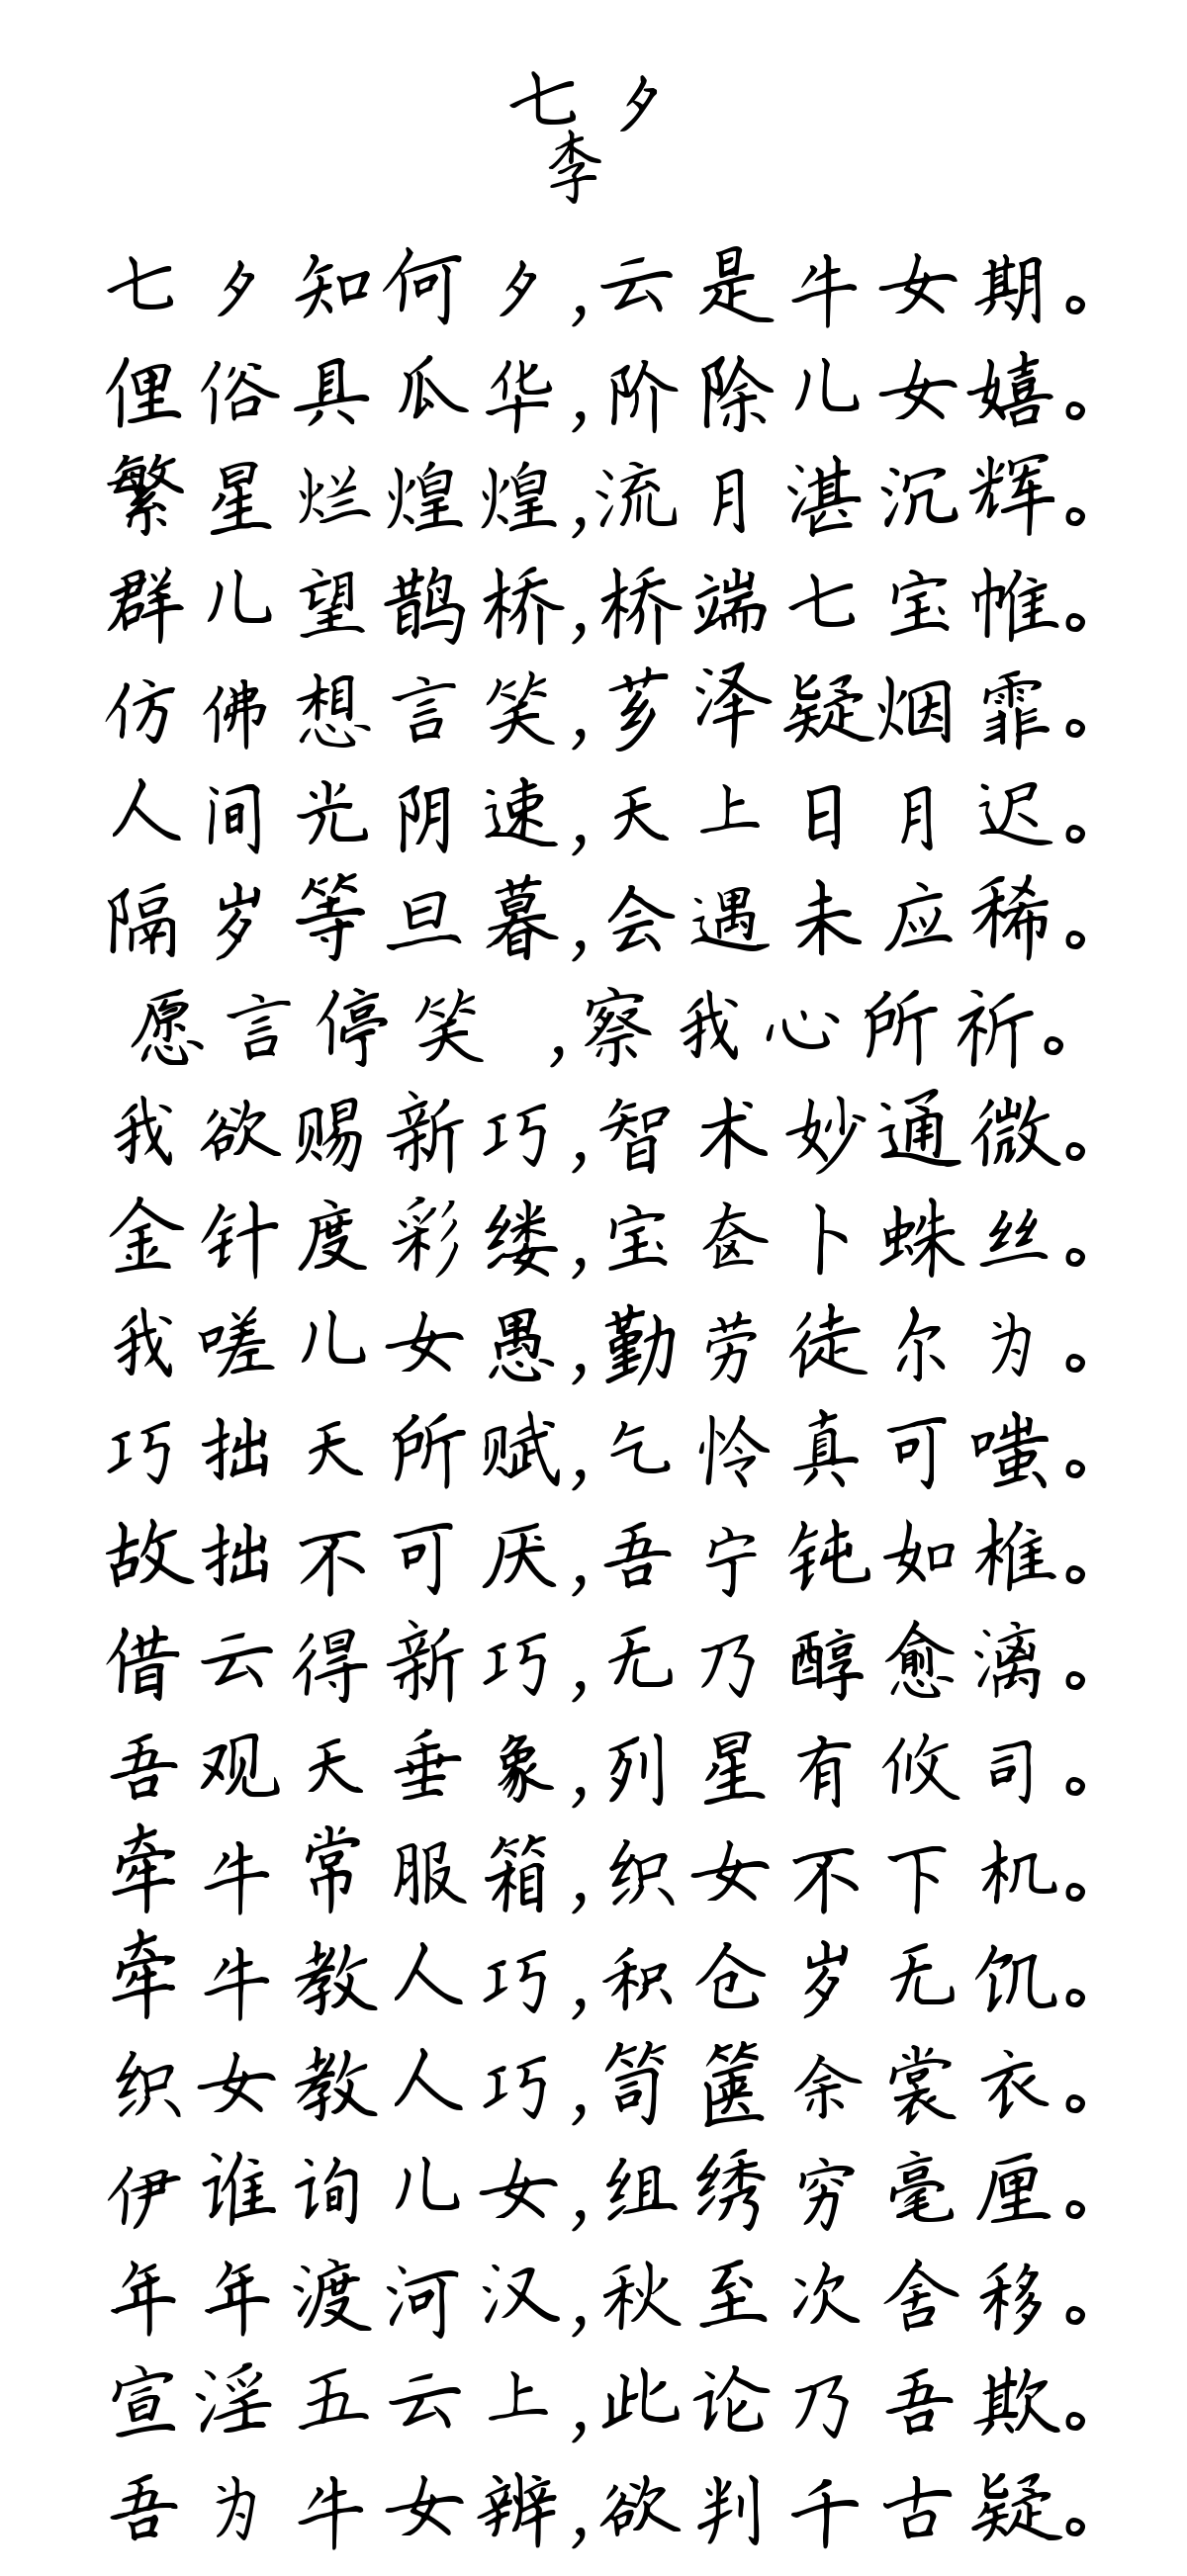 七夕
李
七夕知何夕,云是牛女期。
俚俗具瓜华,阶除儿女嬉。
繁星烂煌煌,流月湛沉辉。
群儿望鹊桥,桥端七宝帷。
仿佛想言笑,芗泽凝烟霏。
人间光阴速,天上日月迟。
隔岁等旦暮,会遇未应稀。
愿言停笑 ,察我心所祈。
我欲赐新巧,智术妙通微。
金针度彩缕,宝奁卜蛛丝。
我嗟儿女愚,勤劳徒尔为。
巧拙天所赋,乞怜真可嗤。
故拙不可厌,吾宁钝如椎。
借云得新巧,无乃醇愈漓。
吾观天垂象,列星有攸司。
牵牛常服箱,织女不下机。
牵牛教人巧,积仓岁无饥。
织女教人巧,笥箧余裳衣。
伊谁询儿女,组绣穷毫厘。
年年渡河汉,秋至次舍移。
宣淫五云上,此论乃吾欺。
吾为牛女辨,欲判千古疑。